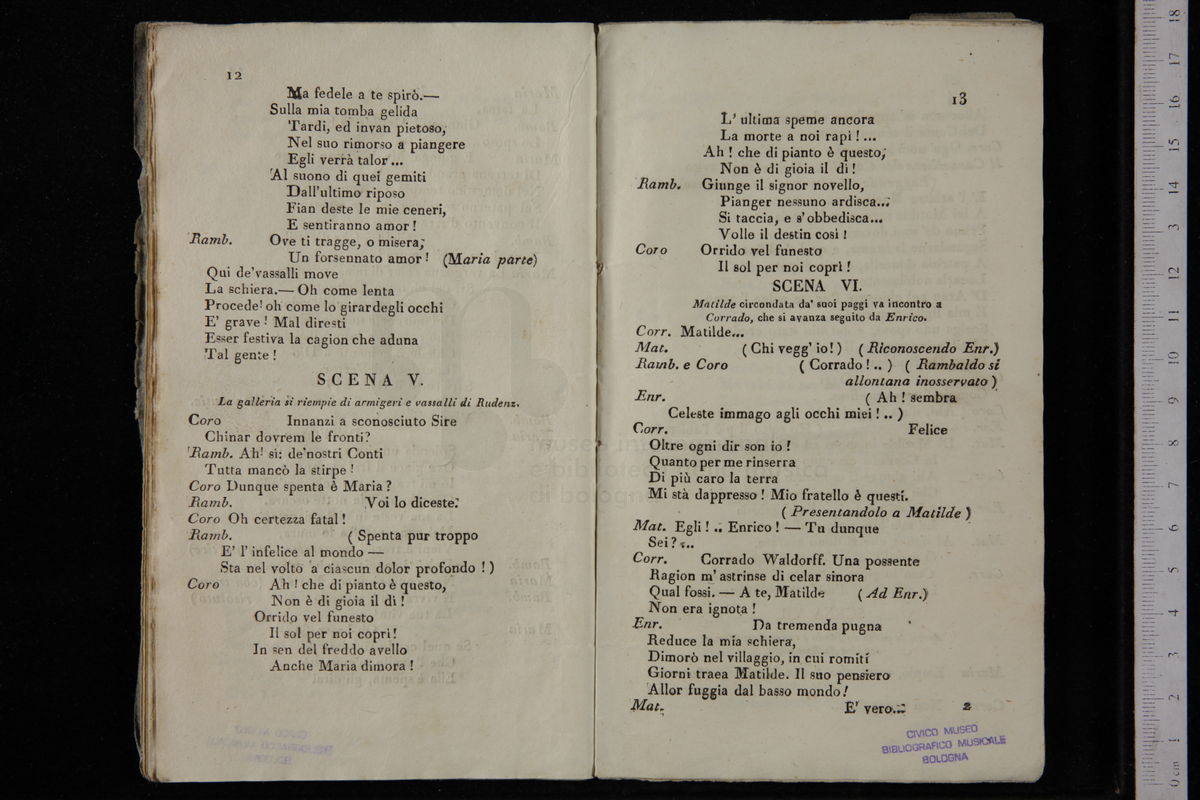 12
Ma fedele a te spirò.—
Sulla mia tomba gelida
Tardi, ed invan pietoso,
Nel suo rimorso a piangere
Egli verrà talor...
Al suono di quei gemiti
Dall'ultimo riposo
Fian deste le mie ceneri,
E sentiranno amor!
Ramb. Ove ti tragge, o misera,
Un forsennato amor! (Maria parte)
Qui de'vassalli move
La schiera.— Oh come lenta
Procede! oh come lo girar degli occhi
E' grave! Mal diresti
Esser festiva la cagion che aduna
Tal gente!
SCENA V.
La galleria si riempie di armigeri e vassalli di Rudenz.
Coro Innanzi a sconosciuto Sire
Chinar dovrem le fronti?
Ramb. Ah! sì: de'nostri Conti
Tutta mancò la stirpe!
Coro Dunque spenta è Maria?
Ramb. Voi lo diceste.
Coro Oh certezza fatal!
Ramb. (Spenta pur troppo
E' l'infelice al mondo —
Sta nel volto a ciascun dolor profondo!)
Coro Ah! che di pianto è questo,
Non è di gioia il dì!
Orrido vel funesto
Il sol per noi coprì!
In sen del freddo avello
Anche Maria dimora!
13
L' ultima speme ancora
La morte a noi rapì!...
Ah! che di pianto è questo,
Non è di gioia il dì!
Ramb. Giunge il signor novello,
Pianger nessuno ardisca...
Si taccia, e s'obbedisca...
Volle il destin così!
Coro Orrido vel funesto
Il sol per noi coprì!
SCENA VI.
Matilde circondata da' suoi paggi va incontro a
Corrado, che si avanza seguito da Enrico.
Corr. Matilde...
Mat. (Chi vegg' io!) (Riconoscendo Enr.)
Ramb. e Coro (Corrado!..) (Rambaldo si
allontana inosservato)
Enr. (Ah! sembra
Celeste immago agli occhi miei!..)
Corr. Felice
Oltre ogni dir son io!
Quanto per me rinserra
Di più caro la terra
Mi stà dappresso! Mio fratello è questi.
(Presentandolo a Matilde)
Mat. Egli!.. Enrico! — Tu dunque
Sei?...
Corr. Corrado Waldorff. Una possente
Ragion m' astrinse di celar sinora
Qual fossi. — A te, Matilde (Ad Enr.)
Non era ignota!
Enr. Da tremenda pugna
Reduce la mia schiera,
Dimorò nel villaggio, in cui romiti
Giorni traea Matilde. Il suo pensiero
Allor fuggia dal basso mondo!
Mat. E' vero...
2
CIVICO MUSEO
BIBLIOGRAFICO MUSICALE
BOLOGNA